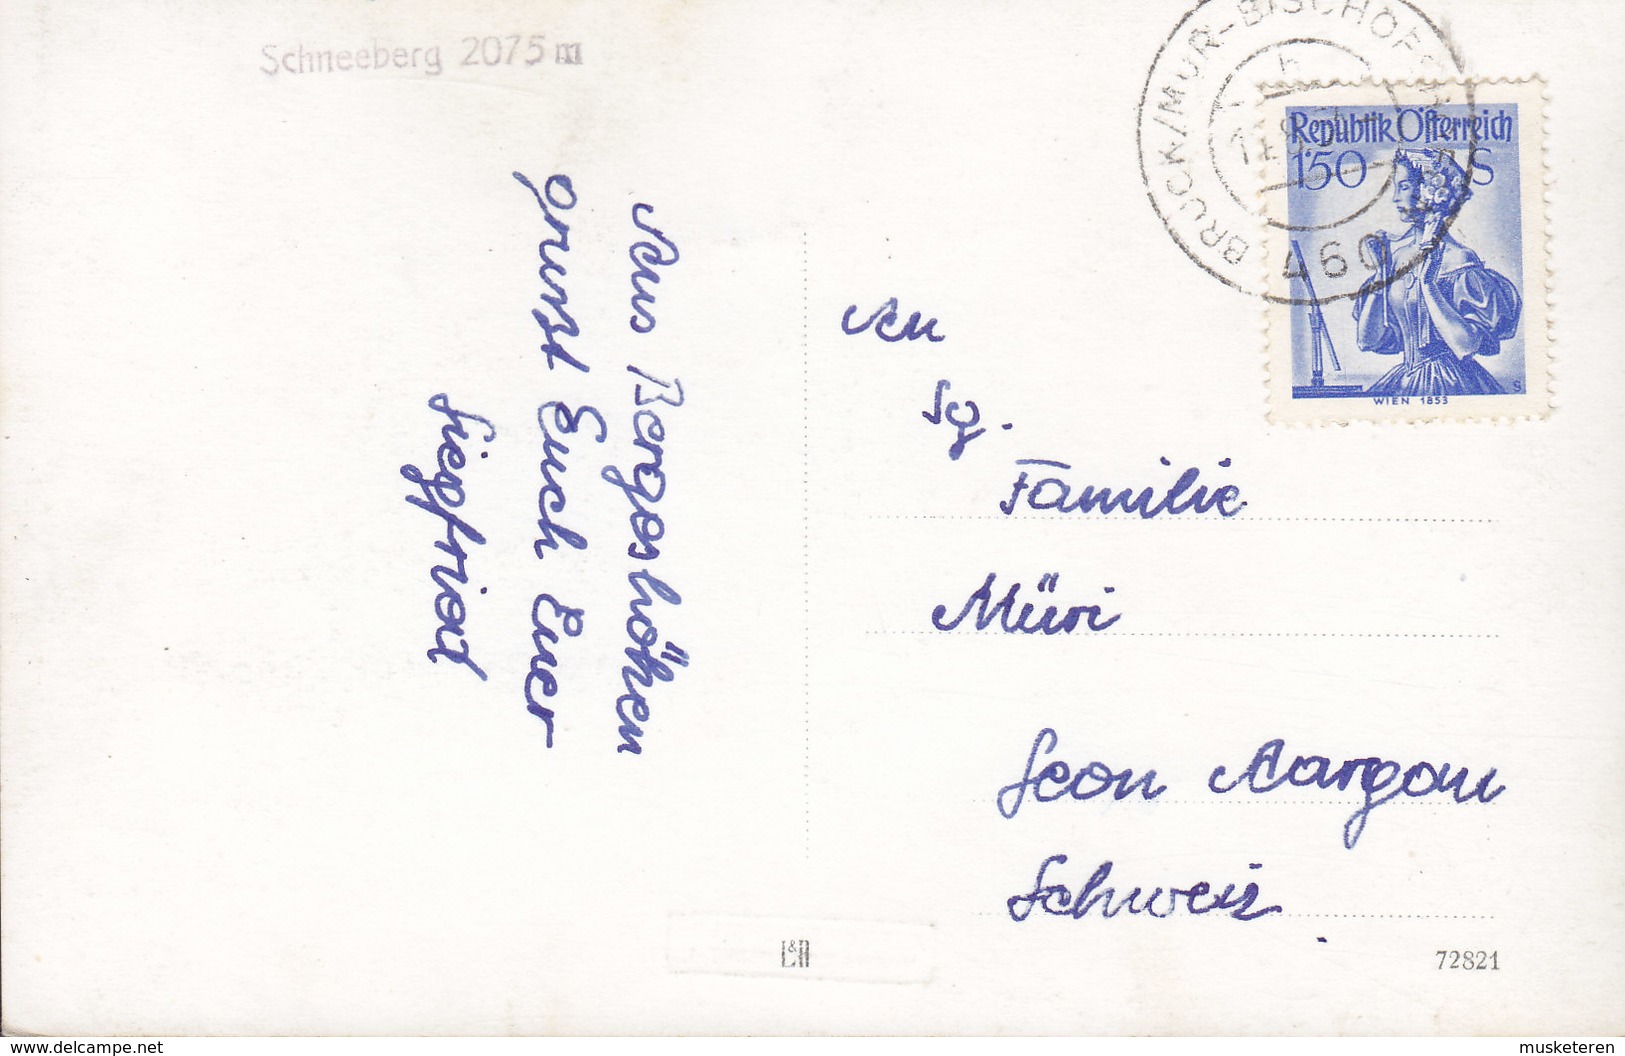 Schneeberg 2075 m
BRUCK/MUR-BISCHOFSH
460
Republik Österreich
1'50 S
WIEN 1853
S
Aus Bergeshöhen
grüsst Euch Euer
Siegfried
An
Fg.
Familie
Müri
Seon Aargau
Schweiz
L&R
72821
www.delcampe.net
musketeren